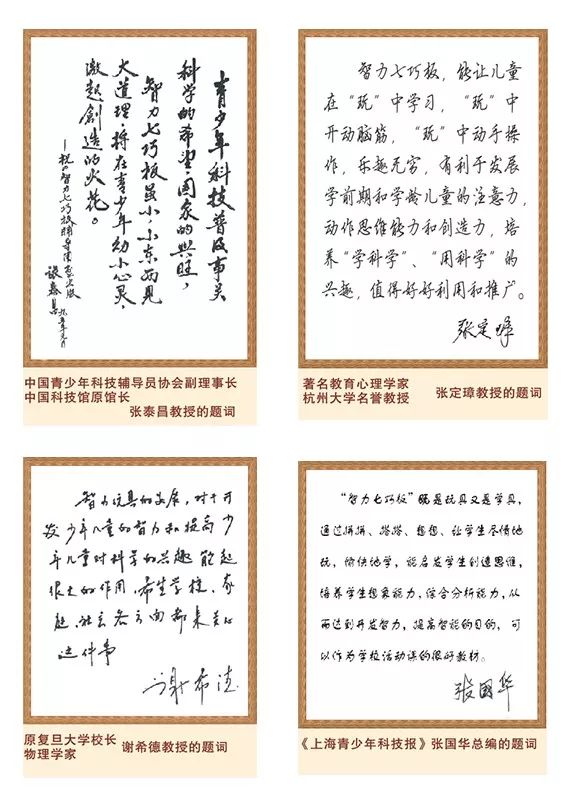 青少年科技普及事关
科学的希望,国家的興旺,
智力七巧板虽小,小东西见
大道理,将在青少年幼小心灵,
激起創造的火花。
—祝贺智力七巧板辅导
张泰昌
中国青少年科技辅导员协会副理事长
中国科技馆原馆长
张泰昌教授的题词
智力七巧板,能让儿童
在“玩”中学习,“玩”中
开动脑筋,“玩”中动手操
作,乐趣无穷,有利于发展
学前期和学龄儿童的注意力,
动作思维能力和创造力,培
养“学科学”、“用科学”的
兴趣,值得好好利用和推广。
张定璋
著名教育心理学家
杭州大学名誉教授
张定璋教授的题词
智力玩具的发展,对于开
发少年儿童的智力和提高少
年儿童对科学的兴趣能起
很大的作用.希望学校、家
庭.社会各方面都来关心
这件事
谢希德
原复旦大学校长
物理学家
谢希德教授的题词
“智力七巧板”既是玩具又是学具,
通过拼拼、搭搭、想想、让学生尽情地
玩,愉快地学,能启发学生创造思维,
培养学生想象能力,综合分析能力,从
而达到开发智力,提高智能的目的,可
以作为学校活动课的很好教材。
张国华
《上海青少年科技报》张国华总编的题词